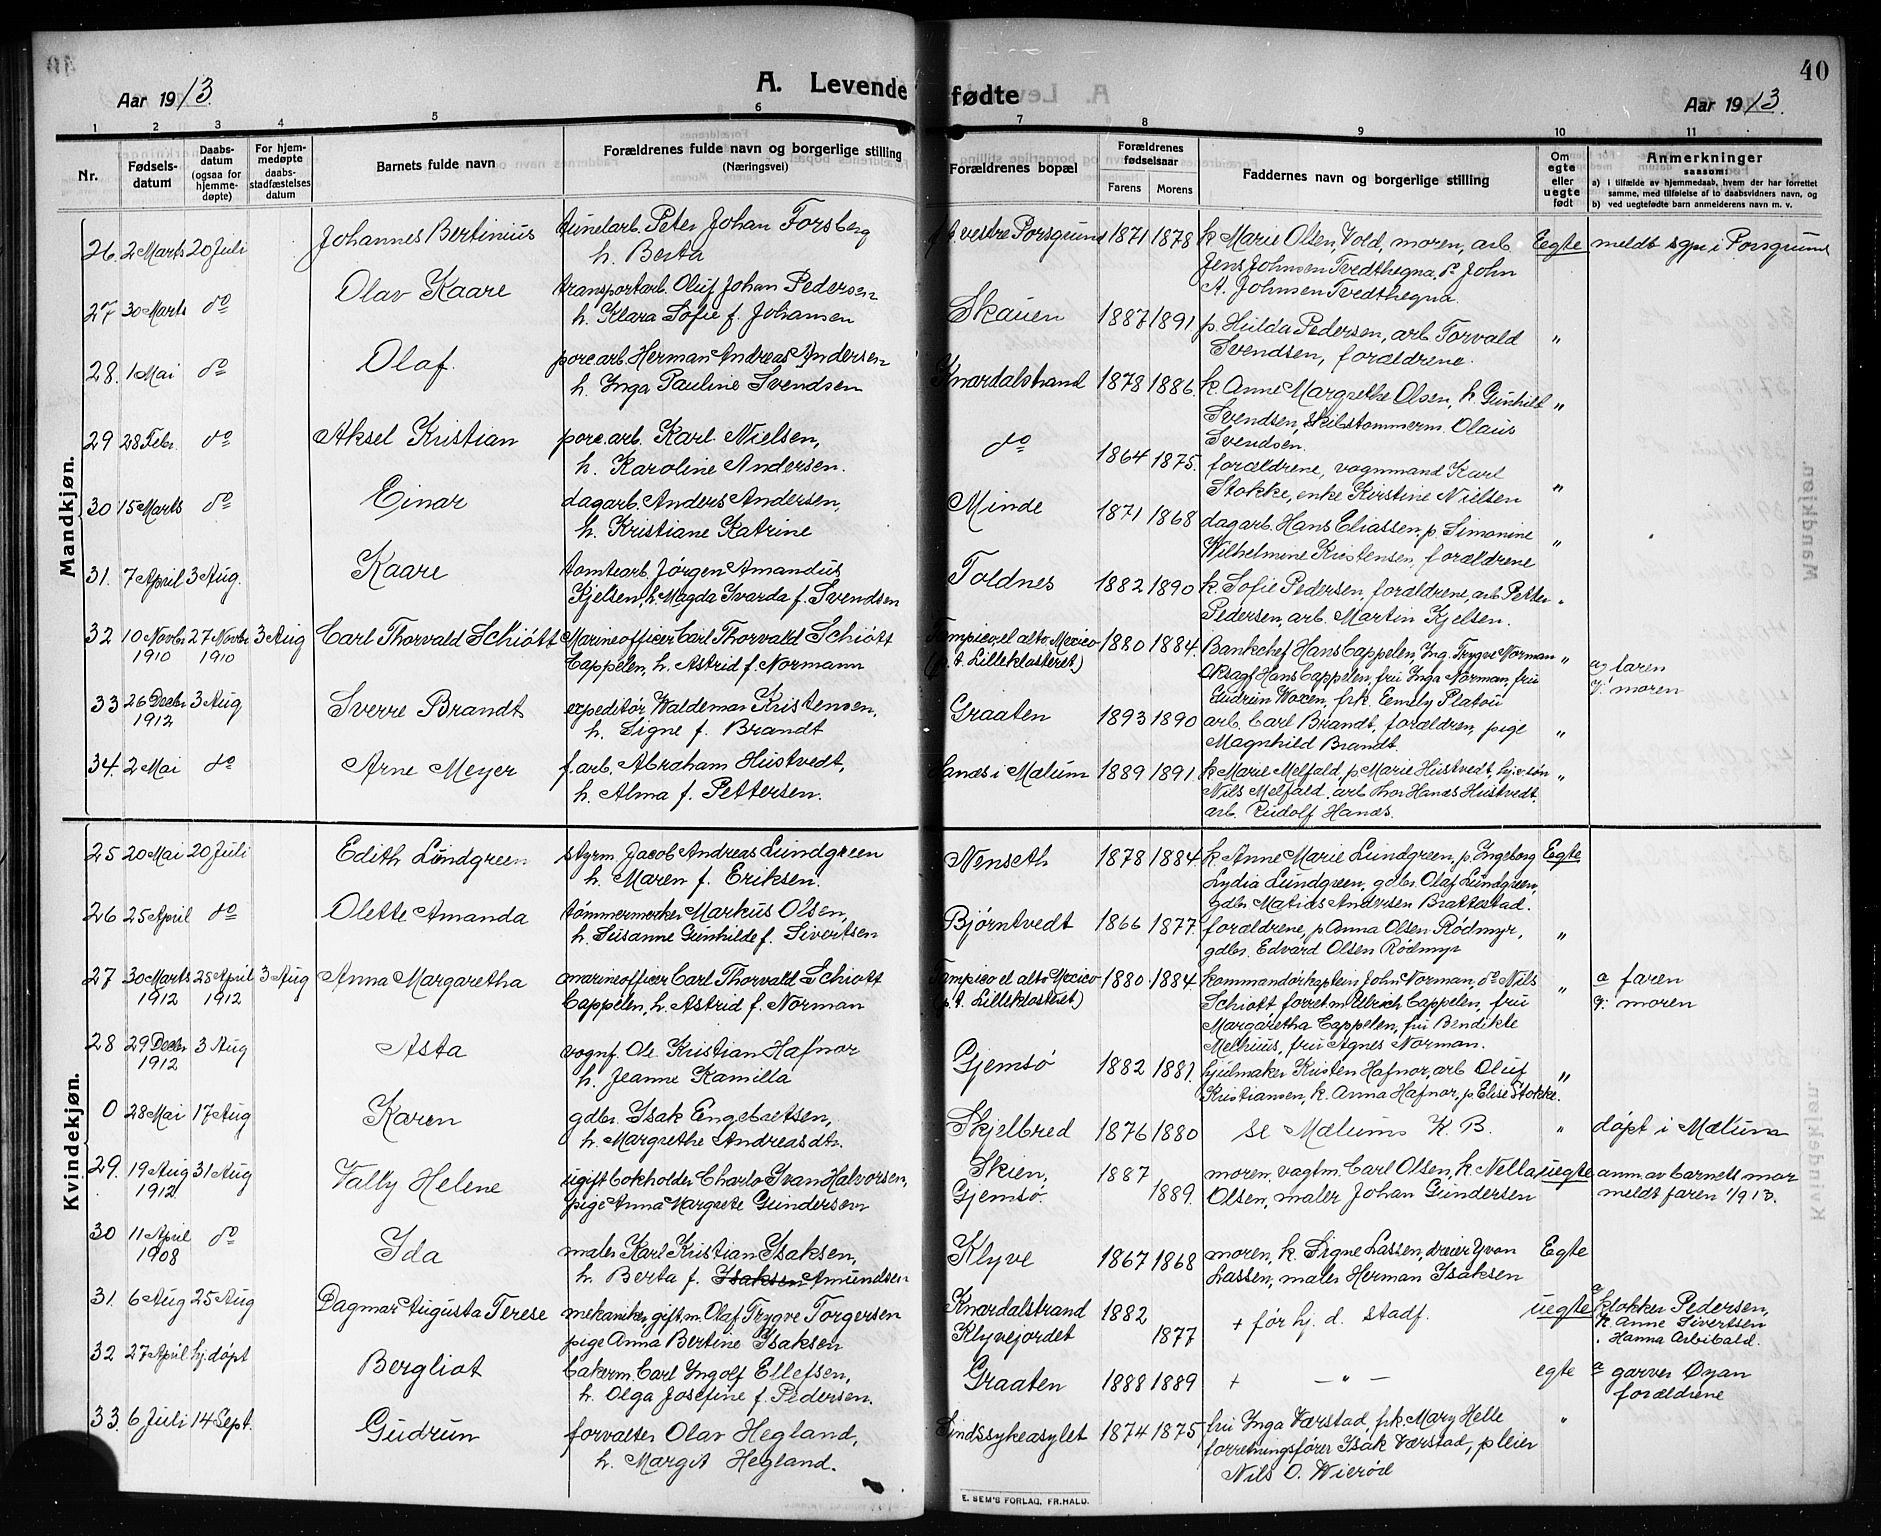 40
Aar 1913.
A. Levende fødte
Aar 1913.
1 2 3 4 5 6 7 8 9 10 11
Nr.
Fødsels-datum
Daabs-datum (ogsaa for hjemme-døpte)
For hjem-medøpte daabs-stadfæstelses datum
Barnets fulde navn
Forældrenes fulde navn og borgerlige stilling (Næringsvei)
Forældrenes bopæl
Forældrenes fødselsaar
Farens
Morens
Faddernes navn og borgerlige stilling
Om egte eller uegte født
Anmerkninger
saasom:
a) i tilfælde av hjemmedaab, hvem der har forrettet samme, med tilføielse af to daabsvidners navn, og
b) ved uegtefødte barn anmelderens navn m. v.
Mandkjøn.
26. 2 Marts 20 Juli Johannes Bertinius tunelarb. Peter Johan Forsberg
h. Berta
vestre Porsgrund 1871 1878 k Marie Olsen Vold, moren, arb
Jens Johnsen Tvedthegna, do John
A. Johnsen Tvedthegna.
Egte meldt sgpr i Porsgrund
27 30 Marts do Olav Kaare transportarb. Oluf Johan Pedersen
h. Klara Sofie f. Johansen
Skauen 1887 1891. p. Hulda Pedersen, arb Torvald
Svendsen, forældrene. "
28. 1 Mai do Olaf. porc.arb. Herman Andreas Andersen
h. Inga Pauline Svendsen
Knardalstrand 1878 1886. k. Anne Margrethe Olsen, h. Gunhild
Svendsen, skibstømmerm. Olaus
Svendsen. "
29 28 Febr. do Aksel Kristian porc.arb. Karl Nielsen,
h. Karoline Andersen.
do 1864 1875. forældrene, vognmand Karl
Stokke, enke Kirstine Nielsen "
30 15 Marts do Einar dagarb. Anders Andersen,
h. Kristiane Katrine
Minde 1871 1868 dagarb. Hans Eliassen, p. Simonine
Wilhelmine Kristensen, forældrene "
31. 7 April 3 Aug. Kaare tomtearb. Jørgen Amandus
Kjelsen, h. Magda Ivarda f. Svendsen
Toldnes 1882 1890 k. Sofie Pedersen, forældrene, arb Petter
Pedersen, arb. Martin Kjelsen. "
32 10 Novbr 1910 27 Novbr 1910 3 Aug Carl Thorvald Schiøtt Marineofficer Carl Thorvald Schiøtt
Cappelen, h. Astrid f. Normann
Tampico el alto Mexico
(p. t. Lilleklosteret)
1880 1884. Bankchef Hans Cappelen, Ing. Trygve Norman
Oksagf Hans Cappelen, fru Inga Norman, fru
Gudrun Woxen, frk. Emely Platou
" a) faren
moren
33 26 Decbr 1912 3 Aug Sverre Brandt expeditør Waldemar Kristensen,
h. Signe f. Brandt
Graaten 1893 1890 arb. Carl Brandt, forældren, pige
Magnhild Brandt. "
34. 2 Mai do Arne Meyer f.arb. Abraham Hustvedt,
h. Alma f. Pettersen.
Hanæs i Mælum 1889 1891. k Marie Melfald, p Marie Hustvedt, hj.v. søn
Nils Melfald, arb Thor Hanæs Hustvedt,
arb. Rudolf Hanæs. "
Kvindekjøn.
25 20 Mai 20 Juli Edith Lundgreen styrm. Jacob Andreas Lundgreen
h. Maren f. Eriksen.
Nenseth 1878 1884 k. Anne Marie Lundgreen, p. Ingeborg
Lydia Lundgreen, gdbr. Olaf Lundgreen,
gdbr Matias Andersen Brattestad.
Egte
26 25 April do Olette Amanda tømmermerker Markus Olsen,
h. Susanne Gunhilde f. Sivertsen
Bjørntvedt 1866 1877. forældrene, p Anna Olsen Rødmyr,
gdbr. Edvard Olsen Rødmyr "
27 30 Marts 1912 28 April 1912 3 Aug Anna Margaretha marineofficer Carl Thorvald Schiøtt
Cappelen, h. Astrid f. Norman
Tampico el alto Mexico
(p. t. Lilleklosteret)
1880 1884 kommandørkaptein John Norman, do Nils
Schiøtt, forret.m Ulrich Cappelen, fru
Margaretha Cappelen, fru Bendikte
Melhuus, fru Agnes Norman.
" a faren
moren
28 29 Decbr 1912 3 Aug Asta vognf. Ole Kristian Hafnor
h. Jeanne Kamilla
Gjemsø 1882 1881. hjulmaker Kristen Hafnor, arb Oluf
Kristiansen, k. Anna Hafnor, p. Elise Stokke. "
0 28 Mai 17 Aug Karen gdbr. Isak Engebretsen,
h. Margrethe Andreasdtr.
Skjelbred 1876 1880 se Mælums K. B. " døpt i Mælum
29. 19 Aug 1912 31 Aug Vally Helene ugift bokholder Charls Ivan Halvorsen,
pige Anna Margrete Gundersen
Skien,
Gjemsø.
1887 1889. moren, vagtm. Carl Olsen, k. Nella
Olsen, maler Johan Gundersen
uegte anm. av barnets mor
meldt faren 1/9 13.
30 11 April 1908 do Ida maler Karl Kristian Isaksen,
h. Berta f. Isaksen Amundsen
Klyve 1867 1868 moren, k. Signe Lassen, dreier Yvon
Lassen, maler Herman Isaksen
Egte
31. 6 Aug 25 Aug Dagmar Augusta Terese mekaniker, gift m. Olaf Trygve Torgersen
pige Anna Bertine Isaksen
Knardalstrand
Klyvejordet
1882 1877 + før hj. d. stadf.
uegte a klokker Pedersen,
k. Anne Sivertsen
Hanna Arbibald.
32 27 April hj. døpt Bergliot bakerm. Carl Ingolf Ellefsen,
h. Olga Josefine f. Pedersen.
Graaten 1888 1889 + — " —
egte a garver Øyan
forældrene
33. 6 Juli 14 Sept. Gudrun forvalter Olav Hegland,
h. Margit Hegland.
Sindssykeasylet 1874 1875, fru Inga Værstad, frk. Mary Helle
forretningsfører Isak Værstad, pleier
Nils O. Wierød
"
E. SEM'S FORLAG, FR.HALD.